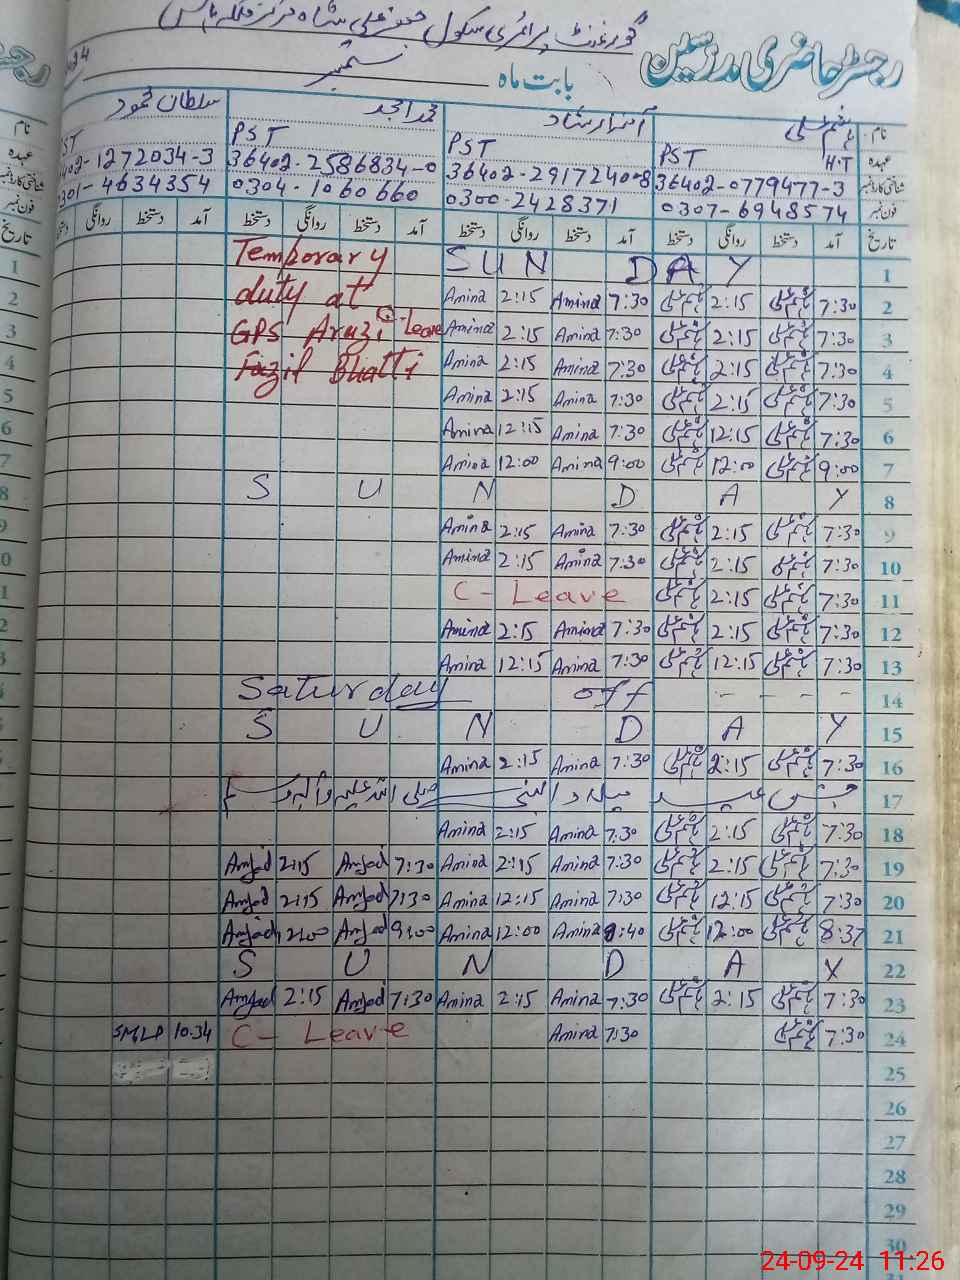 گورنمنٹ پرائمری سکول جعفر علی شاہ مرکز ملکہ ہانس
رجسٹر حاضری مدرسین
بابت ماہ ستمبر
نام ہاشم علی آمنہ ارشاد محمد امجد سلطان محمود
عہدہ H.T PST PST PST
شناختی کارڈ نمبر 36402-0779477-3 36402-2917240-8 36402-2586834-0 402-1272034-3
فون نمبر 0307-6948574 0300-2428371 0304-1060660 0301-4634354
تاریخ آمد دستخط روانگی دستخط آمد دستخط روانگی دستخط آمد دستخط روانگی دستخط آمد دستخط روانگی دستخط
Temporary SUN DAY 1
duty at Amina 2:15 Amina 7:30 ہاشم علی 2:15 ہاشم علی 7:30 2
GPS Arazi C-Leave Amina 2:15 Amina 7:30 ہاشم علی 2:15 ہاشم علی 7:30 3
Fazil Bhatti Amina 2:15 Amina 7:30 ہاشم علی 2:15 ہاشم علی 7:30 4
Amina 2:15 Amina 7:30 ہاشم علی 2:15 ہاشم علی 7:30 5
Amina 12:15 Amina 7:30 ہاشم علی 12:15 ہاشم علی 7:30 6
Amina 12:00 Amina 9:00 ہاشم علی 12:00 ہاشم علی 9:00 7
S U N D A Y 8
Amina 2:15 Amina 7:30 ہاشم علی 2:15 ہاشم علی 7:30 9
Amina 2:15 Amina 7:30 ہاشم علی 2:15 ہاشم علی 7:30 10
C- Leave ہاشم علی 2:15 ہاشم علی 7:30 11
Amina 2:15 Amina 7:30 ہاشم علی 2:15 ہاشم علی 7:30 12
Amina 12:15 Amina 7:30 ہاشم علی 12:15 ہاشم علی 7:30 13
Saturday off - - - - 14
S U N D A Y 15
Amina 2:15 Amina 7:30 ہاشم علی 2:15 ہاشم علی 7:30 16
جشن عید میلاد النبی صلی اللہ علیہ وآلہ وسلم 17
Amina 2:15 Amina 7:30 ہاشم علی 2:15 ہاشم علی 7:30 18
Amjad 2:15 Amjad 7:30 Amina 2:15 Amina 7:30 ہاشم علی 2:15 ہاشم علی 7:30 19
Amjad 2:15 Amjad 7:30 Amina 12:15 Amina 7:30 ہاشم علی 12:15 ہاشم علی 7:30 20
Amjad 12:00 Amjad 9:00 Amina 12:00 Amina 8:40 ہاشم علی 12:00 ہاشم علی 8:37 21
S U N D A Y 22
Amjad 2:15 Amjad 7:30 Amina 2:15 Amina 7:30 ہاشم علی 2:15 ہاشم علی 7:30 23
10:34 C- Leave Amina 7:30 ہاشم علی 7:30 24
25
26
27
28
29
30
24-09-24 11:26